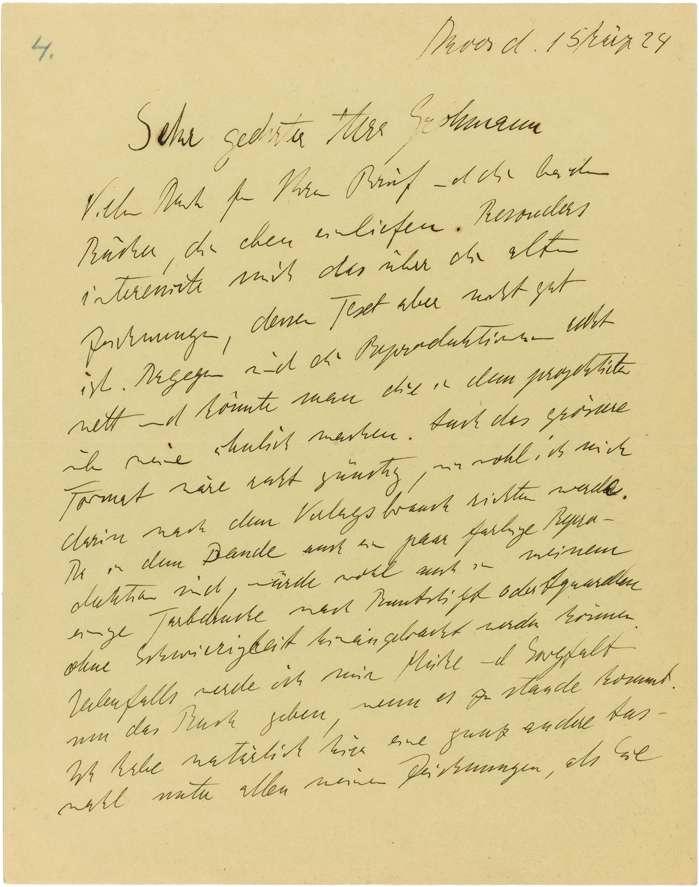 4.
Davos d. 15 März 24
Sehr geehrter Herr Grohmann
Vielen Dank für Ihren Brief und die beiden
Bücher, die eben einliefen. Besonders
interessirte mich das über die alten
Zeichnungen, dessen Text aber nicht gut
ist. Dagegen sind die Reproduktionen recht
nett und könnte man die in dem projektirten
über meine ähnlich machen. Auch das grössere
Format wäre recht günstig, wiewohl ich mich
darin nach dem Verlagsbrauch richten werde.
Da in dem Bande auch ein paar farbige Repro-
duktion sind, würde wohl auch in meinem
einige Farbdrucke nach Buntstift oder Aquarellen
ohne Schwierigkeit hineingebracht werden können.
Jedenfalls werde ich mir Mühe und Sorgfalt
um das Buch geben, wenn es zu stande kommt.
Ich habe natürlich hier eine ganz andere Aus-
wahl unter allen meinen Zeichnungen, als Sie